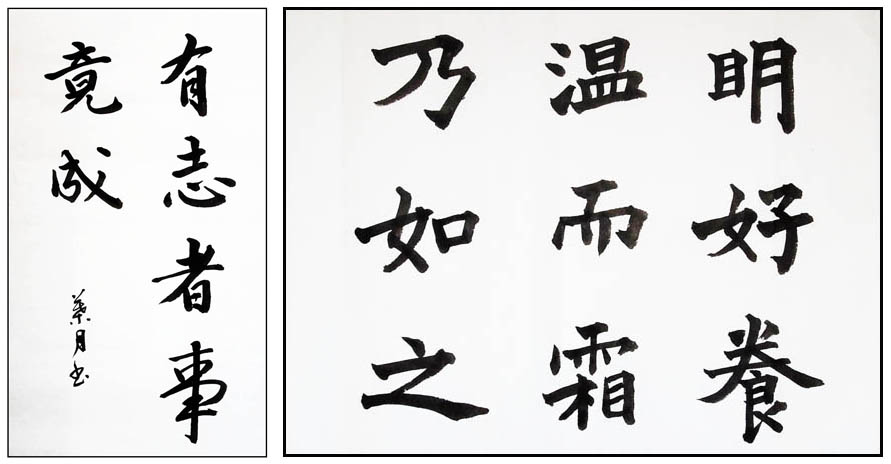 有志者事
竟成
葉月书
明好養
温而霜
乃如之